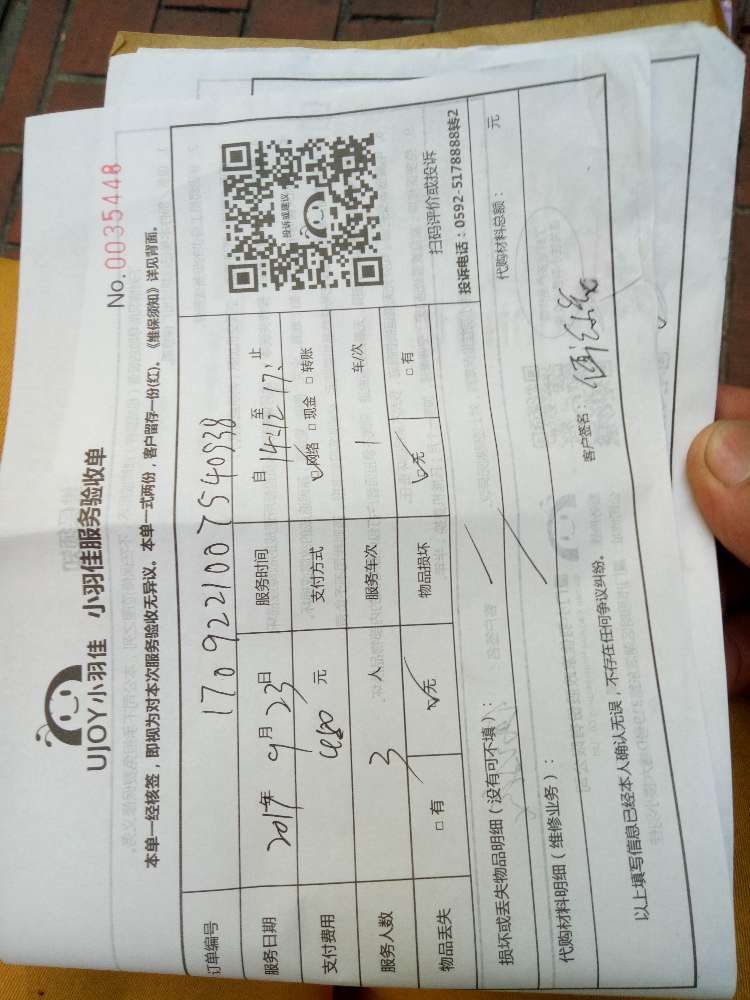 UJOY小羽佳 小羽佳服务验收单
No. 0035448
本单一经核签，即视为对本次服务验收无异议。本单一式两份，客户留存一份(红)。《维保须知》详见背面。
订单编号 170922100754093​8
服务日期 2017年 9月 23日 服务时间 自 14:12 至 17: 止
支付费用 480 元 支付方式 ☑网络 □现金 □转账
服务人数 3 人 服务车次 1 车/次
物品丢失 □有 ☑无 物品损坏 ☑无 □有
投诉或建议
扫码评价或投诉
投诉电话：0592-5178888转2
损坏或丢失物品明细（没有可不填）：
代购材料明细（维修业务）： 代购材料总额： 元
以上填写信息已经本人确认无误，不存在任何争议纠纷。 客户签名：